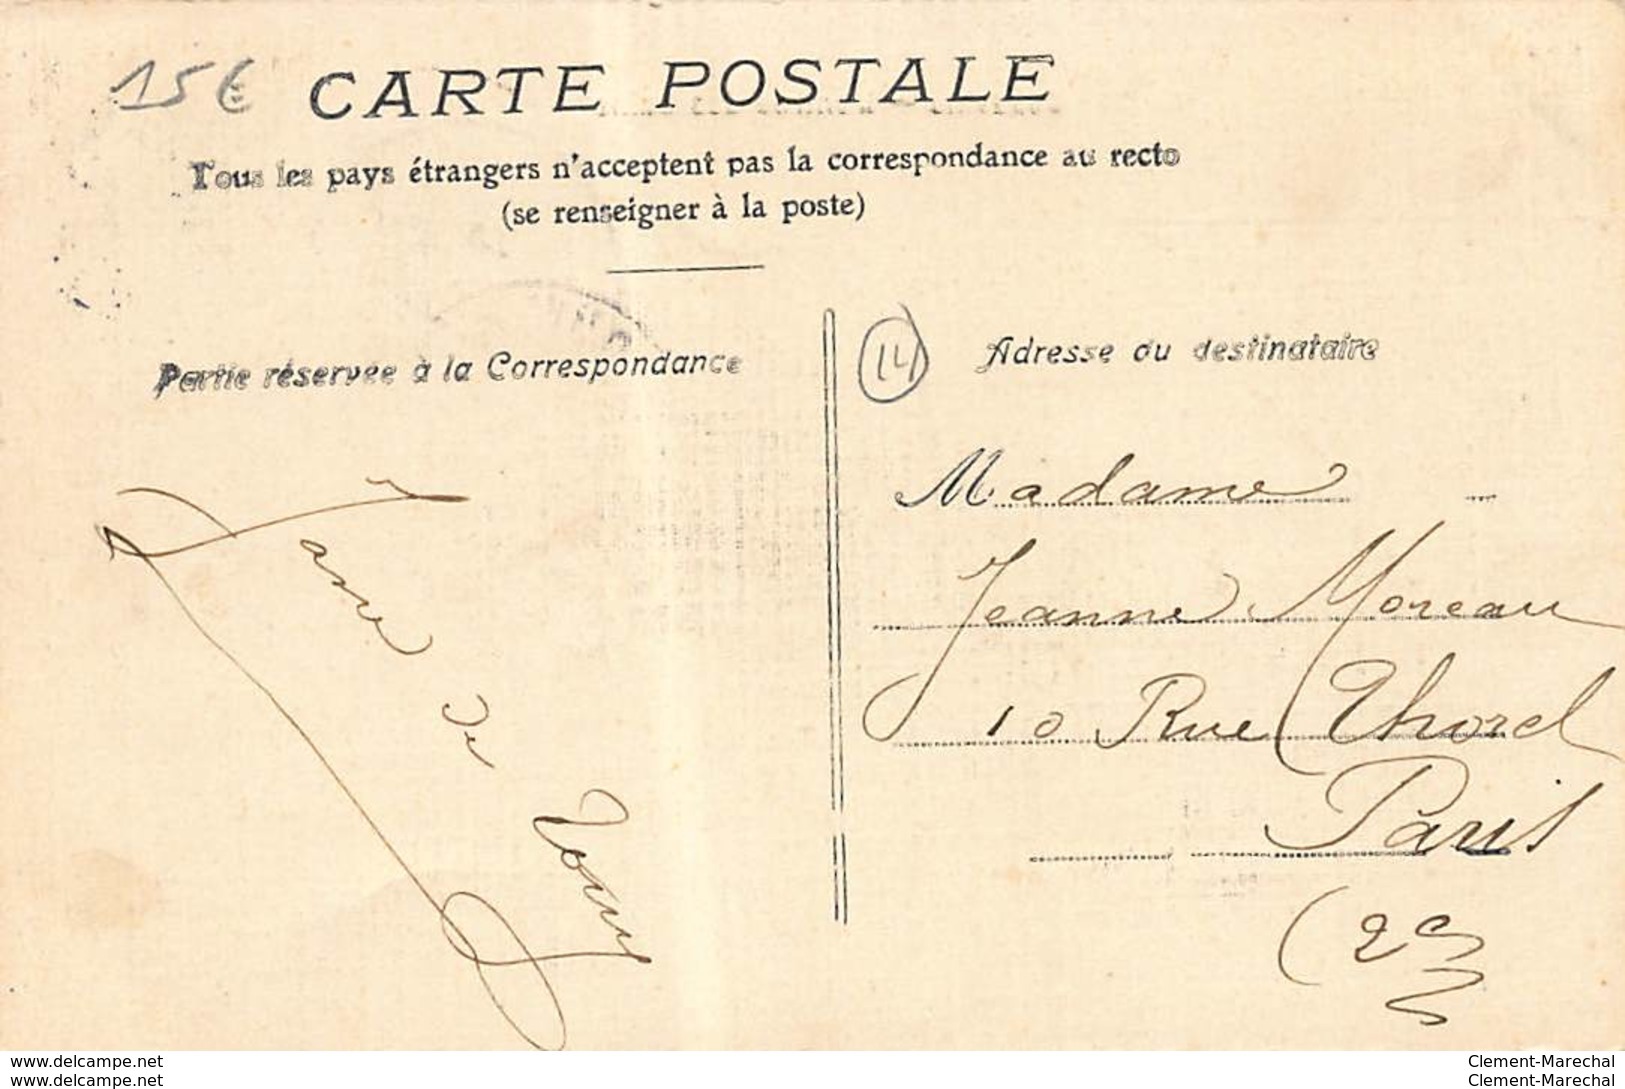 15€
CARTE POSTALE
Tous les pays étrangers n'acceptent pas la correspondance au recto
(se renseigner à la poste)
Partie réservée à la Correspondance
14
Adresse du destinataire
Madame
Jeanne Moreau
10 Rue Thorel
Paris
(2e
de
www.delcampe.net
www.delcampe.net
Clement-Marechal
Clement-Marechal